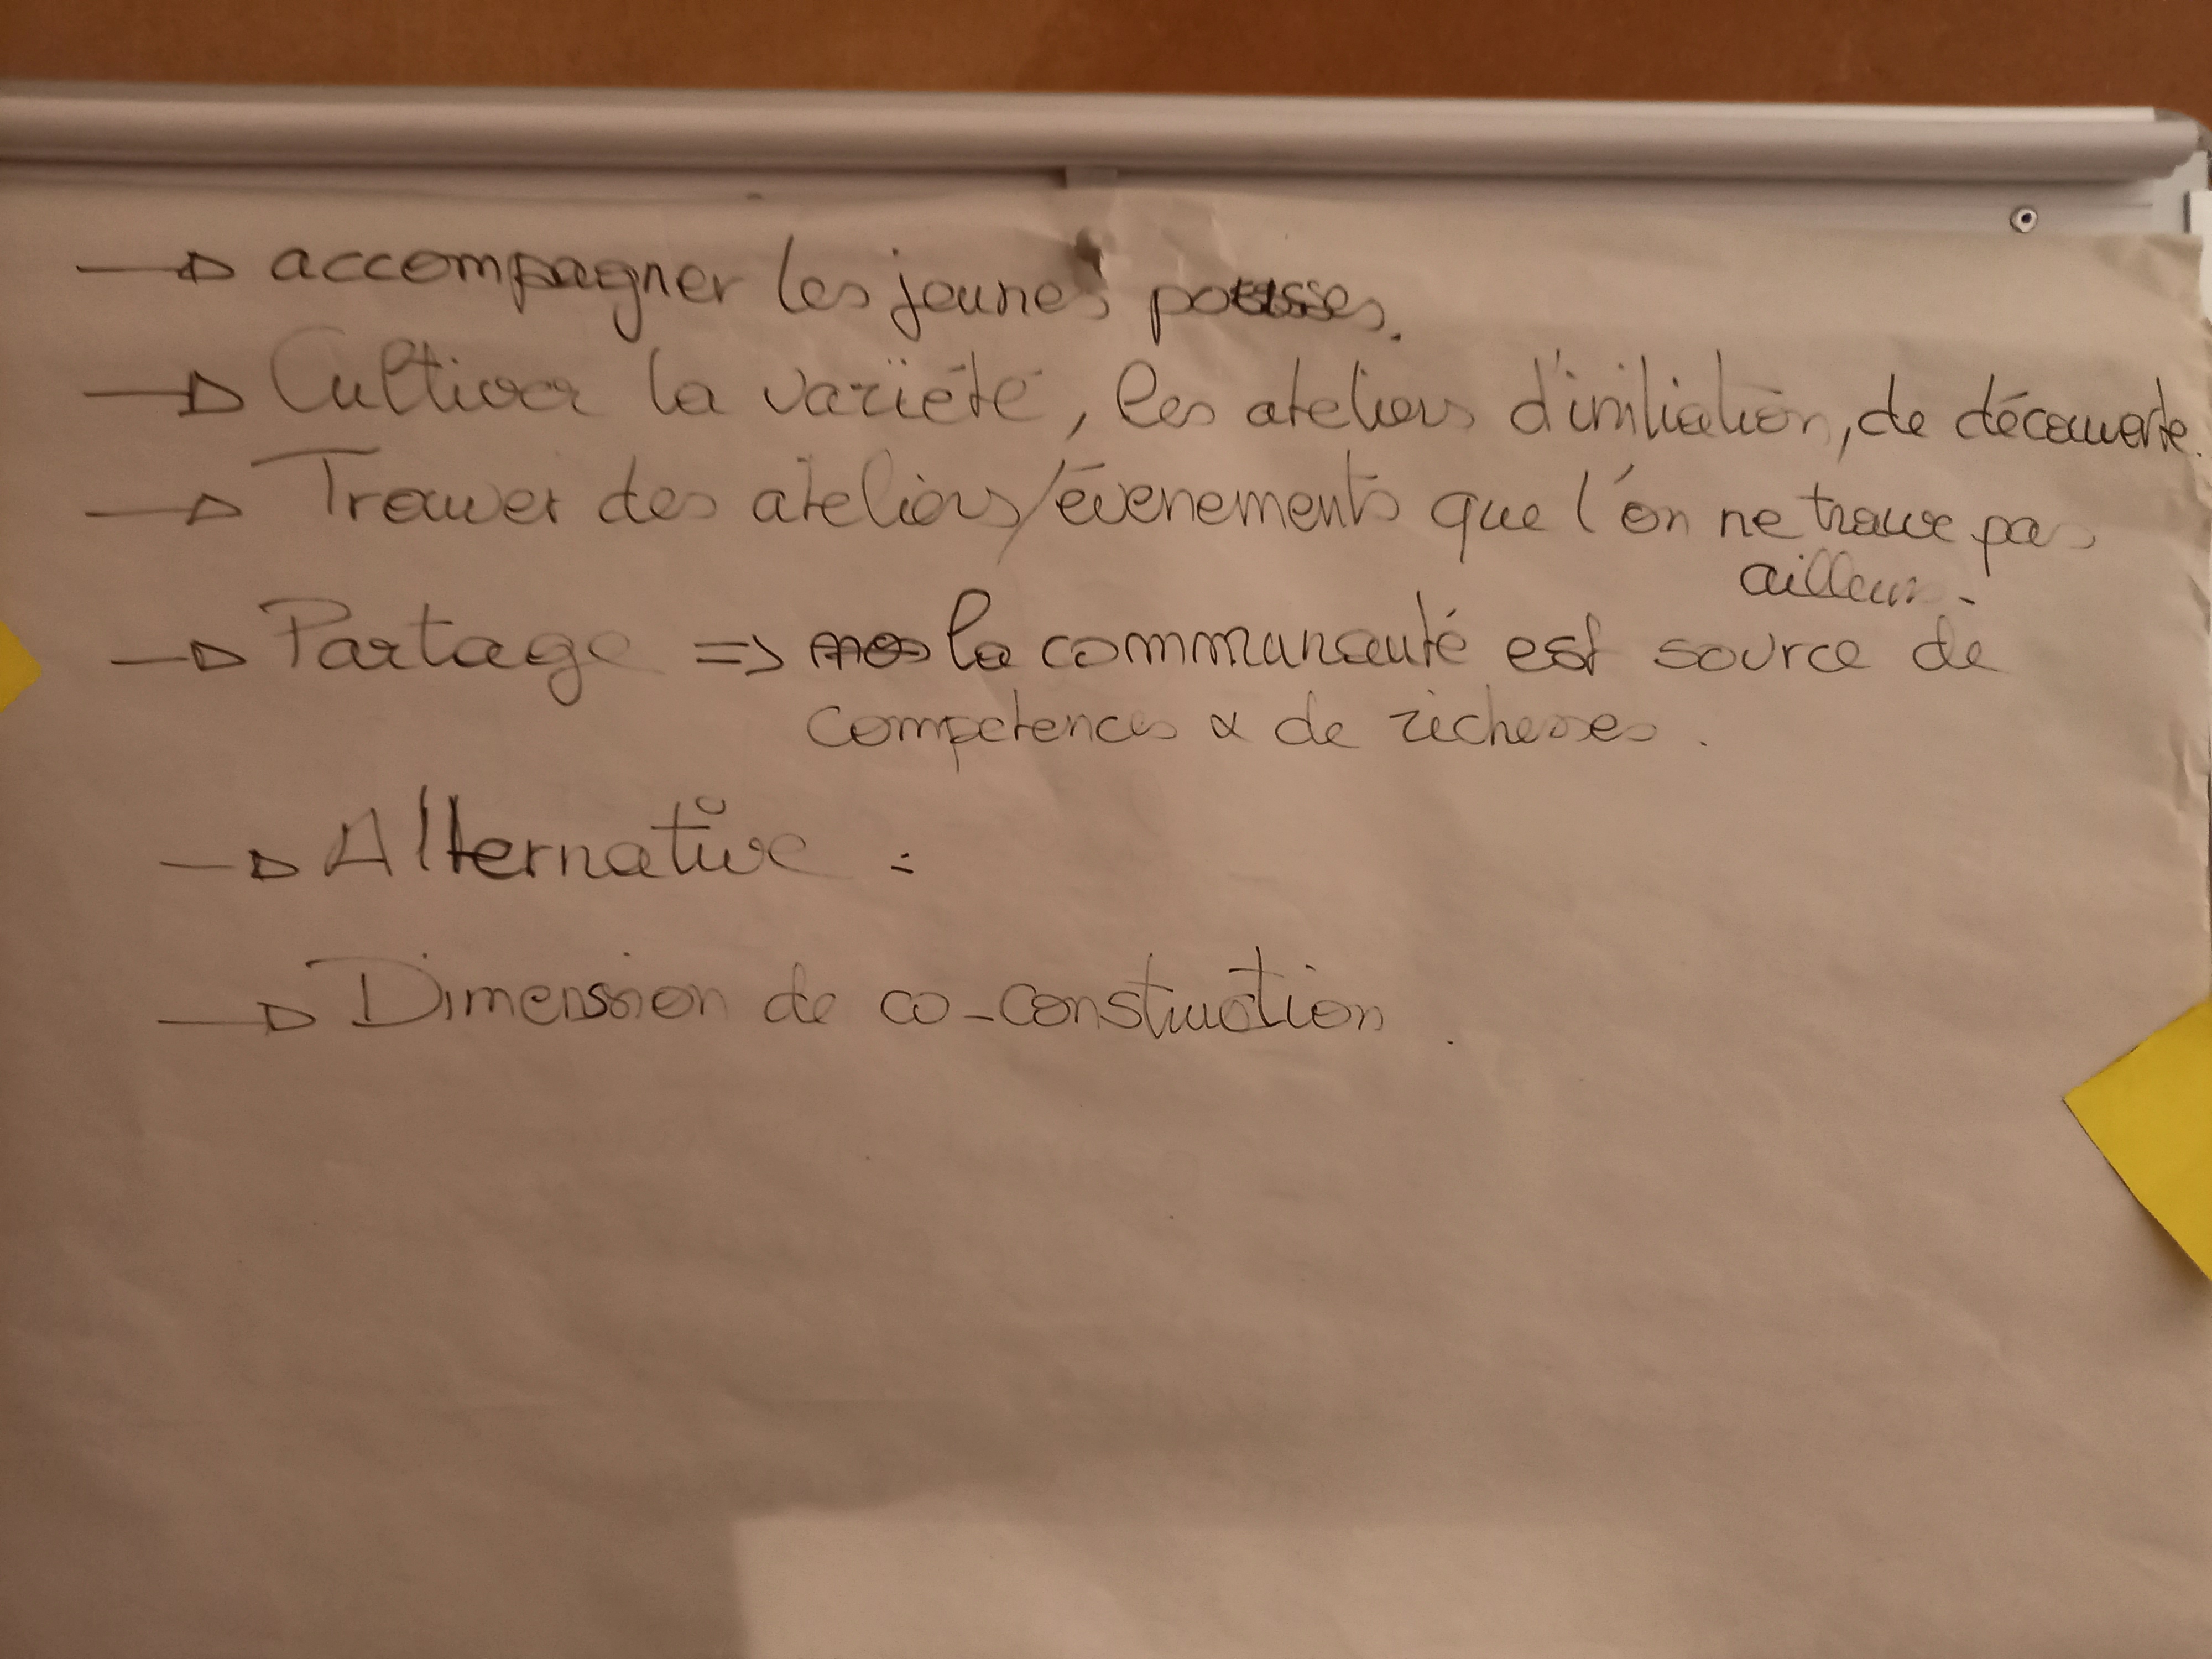 → accompagner les jeunes pousses.
→ Cultiver la variété, les ateliers d'initiation, de découverte.
→ Trouver des ateliers/évenements que l'on ne trouve pas
ailleurs.
→ Partage => la communauté est source de
competences & de richesses.
→ Alternative :
→ Dimension de co-construction.